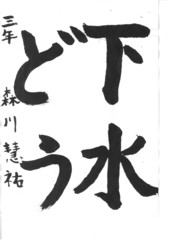 下水
どう
三年 森川慧祐